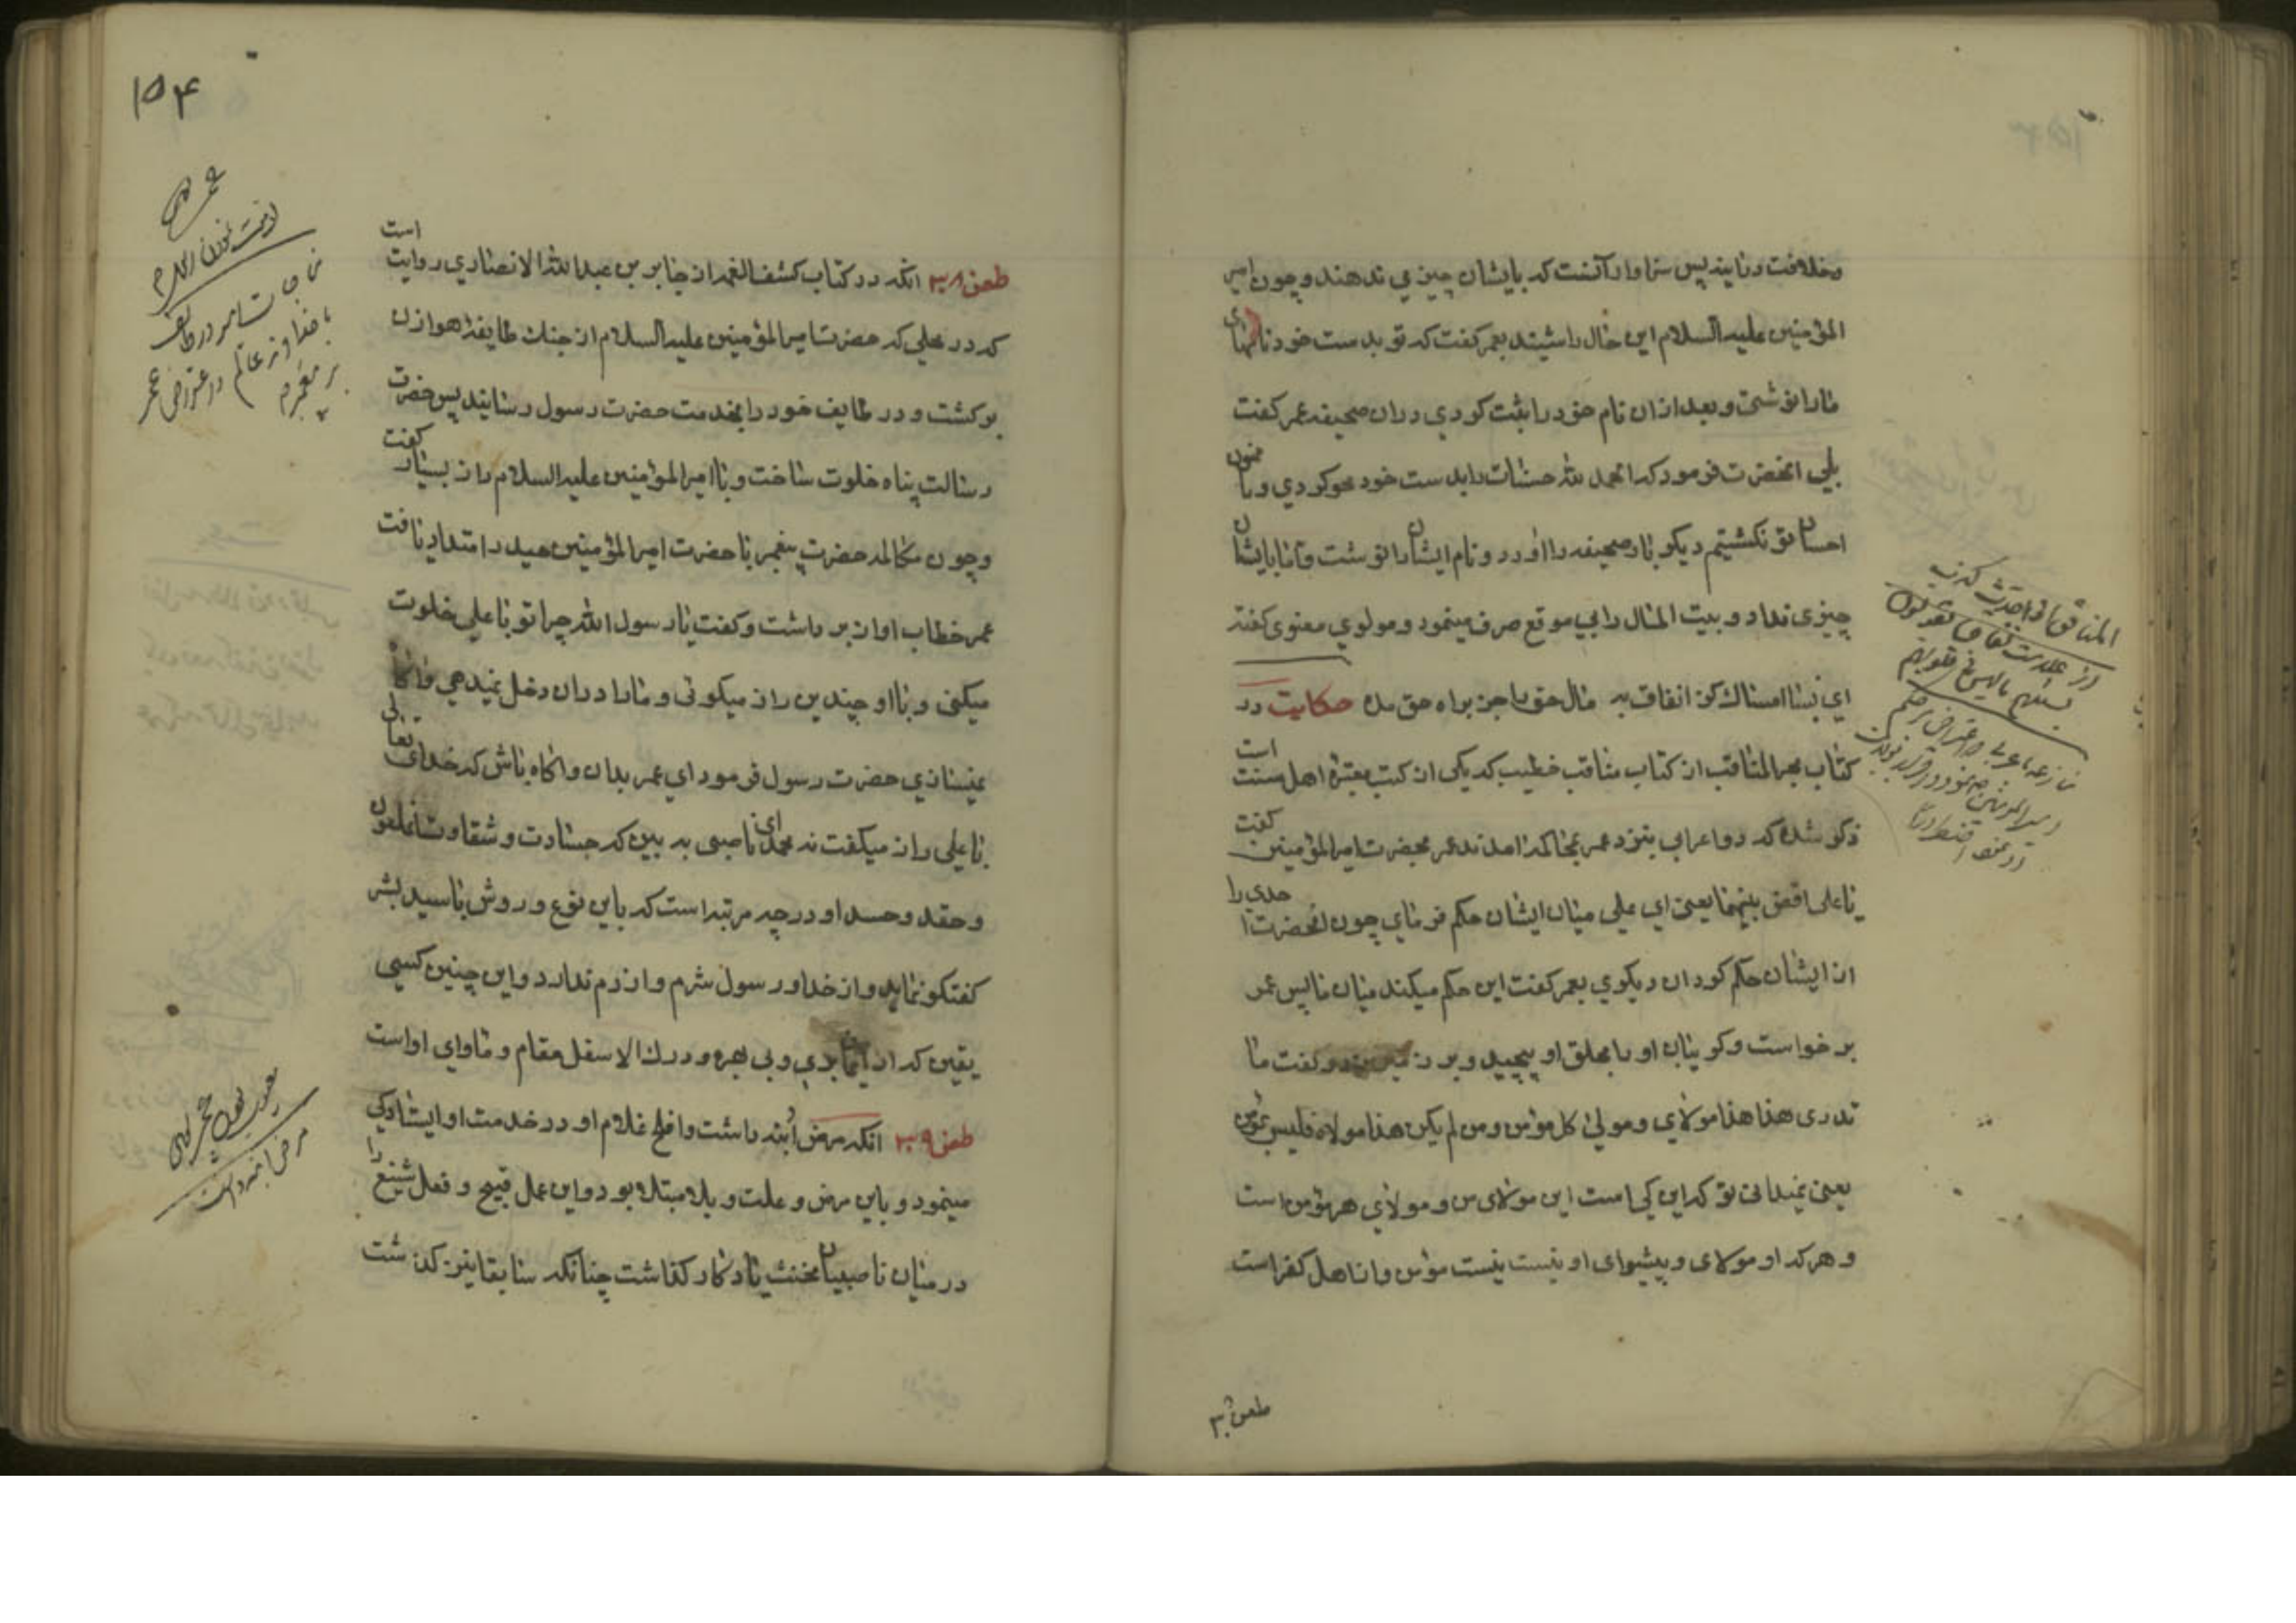 وخلافت رسانید پس سزاوار آنست که بایشان چیزی ندهند و چون امیر
المؤمنین علیه السلام این حال را شنید بعمر کفت که تو بدست خود نامهای
ما را نوشتی و بعد ازان نام خود را ثبت کردی دران صحیفه عمر کفت
بلی انحضرت فرمود که الحمد لله حسنات را بدست خود محو کردی و ما ممنون
احسان تو نکشتیم دیکر بار صحیفه را اورد و نام ایشان را نوشت و اما بایشان
چیزی نداد و بیت المال را بی موقع صرف مینمود و مولوی معنوی کفته
ای بسا امساک کز انفاق به مال حق را جز براه حق مده حکایت در
کتاب بحر المناقب از کتاب مناقب خطیب که یکی از کتب معتبره اهل سنت است
ذکر شده که دو اعرابی بنزد عمر بمحاکمه امدند عمر بحضرت امیر المؤمنین کفت
یا علی اقض بینهما یعنی ای علی میان ایشان حکم فرمای چون انحضرت
از ایشان حکم کرد ان دیکری بعمر کفت این حکم میکند میان ما پس عمر
برخواست و کریبان او را بحلق او پیچید و بر زمین زد و کفت ما
تدری هذا هذا مولای و مولی کل مؤمن و من لم یکن هذا مولاه فلیس بمؤمن
یعنی نمیدانی تو که این کی است این مولای من و مولای هر مؤمن است
و هر که او مولای و پیشوای او نیست نیست مؤمن و از اهل کفر است
۱۵۴
طعن ۳۸ انکه در کتاب کشف الغمه از جابر بن عبد الله الانصاری روایت است
که در محلی که حضرت امیر المؤمنین علیه السلام از جنک طایفه هوازن
برکشت و در طایف خود را بخدمت حضرت رسول رسانید پس حضرت
رسالت پناه خلوت ساخت و با امیر المؤمنین علیه السلام راز بسیار کفت
و چون مکالمه حضرت پیغمبر با حضرت امیر المؤمنین حیدر امتداد یافت
عمر خطاب اواز برداشت و کفت یا رسول الله چرا تو با علی خلوت
میکنی و با او چندین راز میکوئی و ما را دران دخل نمیدهی و اکاه
نمیسازی حضرت رسول فرمود ای عمر بدان و اکاه باش که خدای تعالی
با علی راز میکفت نه محمد ای ناصبی به بین که جسارت و شقاوت
و حقد و حسد او در چه مرتبه است که باین نوع و روش با سید بشر
کفتکو نماید و از خدا و رسول شرم و ازرم ندارد و این چنین کسی
یقین که از بدی و بی بهره و درک الاسفل مقام و ماوای او است
طعن ۳۹ انکه مرض ابنه داشت و افلح غلام او در خدمت او ایستادکی
مینمود و باین مرض و علت و بلا مبتلا بود و این عمل قبیح و فعل شنیع را
در میان ناصبیان مخنث یادکار کذاشت چنانکه سابقا نیز کذشت
مرض ابنه داشت